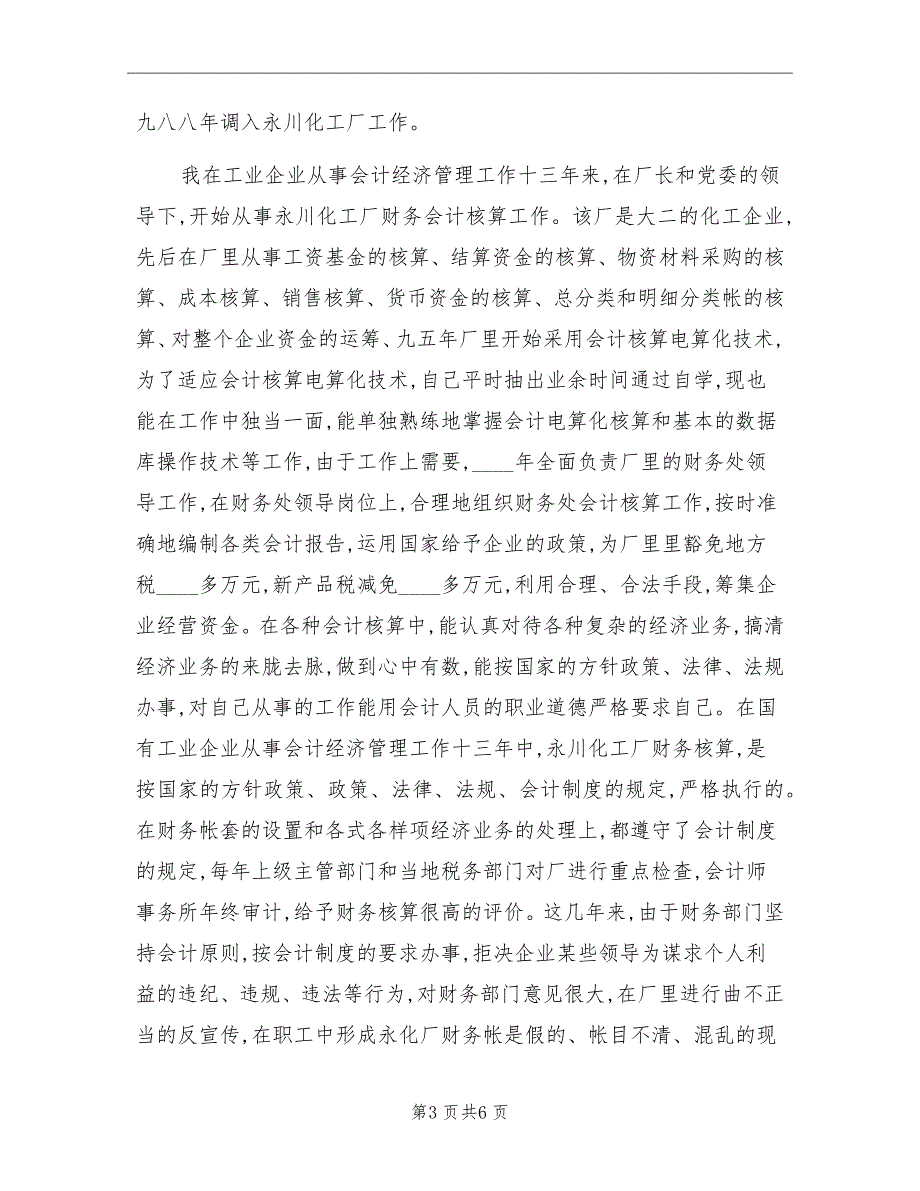 九八八年调入永川化工厂工作。
我在工业企业从事会计经济管理工作十三年来,在厂长和党委的领
导下,开始从事永川化工厂财务会计核算工作。该厂是大二的化工企业,
先后在厂里从事工资基金的核算、结算资金的核算、物资材料采购的核
算、成本核算、销售核算、货币资金的核算、总分类和明细分类帐的核
算、对整个企业资金的运筹、九五年厂里开始采用会计核算电算化技术,
为了适应会计核算电算化技术,自己平时抽出业余时间通过自学,现也
能在工作中独当一面,能单独熟练地掌握会计电算化核算和基本的数据
库操作技术等工作,由于工作上需要,____年全面负责厂里的财务处领
导工作,在财务处领导岗位上,合理地组织财务处会计核算工作,按时准
确地编制各类会计报告,运用国家给予企业的政策,为厂里里豁免地方
税____多万元,新产品税减免____多万元,利用合理、合法手段,筹集企
业经营资金。在各种会计核算中,能认真对待各种复杂的经济业务,搞清
经济业务的来胧去脉,做到心中有数,能按国家的方针政策、法律、法规
办事,对自己从事的工作能用会计人员的职业道德严格要求自己。在国
有工业企业从事会计经济管理工作十三年中,永川化工厂财务核算,是
按国家的方针政策、政策、法律、法规、会计制度的规定,严格执行的。
在财务帐套的设置和各式各样项经济业务的处理上,都遵守了会计制度
的规定,每年上级主管部门和当地税务部门对厂进行重点检查,会计师
事务所年终审计,给予财务核算很高的评价。这几年来,由于财务部门坚
持会计原则,按会计制度的要求办事,拒决企业某些领导为谋求个人利
益的违纪、违规、违法等行为,对财务部门意见很大,在厂里进行曲不正
当的反宣传,在职工中形成永化厂财务帐是假的、帐目不清、混乱的现
第3 页共6 页